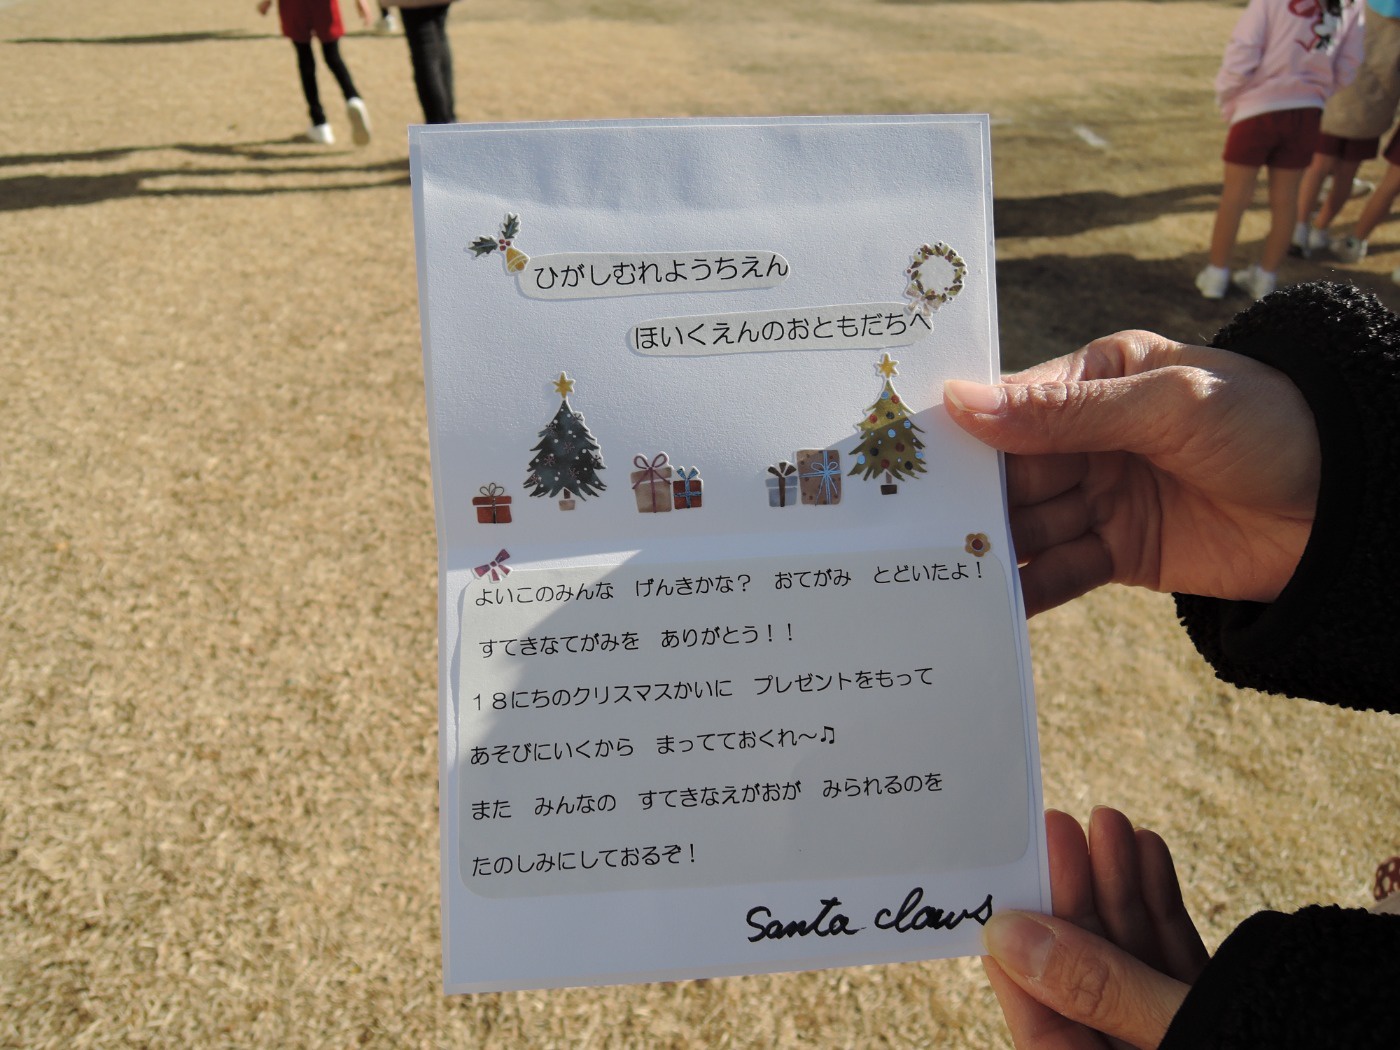 ひがしむれようちえん
ほいくえんのおともだちへ
よいこのみんな　げんきかな？　おてがみ　とどいたよ！
すてきなてがみを　ありがとう！！
１８にちのクリスマスかいに　プレゼントをもって
あそびにいくから　まってておくれ～♫
また　みんなの　すてきなえがおが　みられるのを
たのしみにしておるぞ！
Santa claus